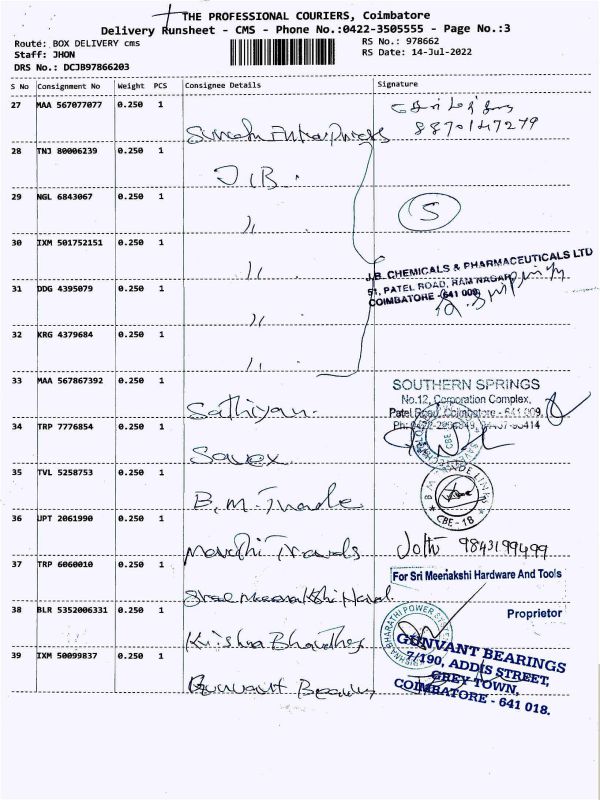 THE PROFESSIONAL COURIERS, Coimbatore
Delivery Runsheet - CMS - Phone No.:0422-3505555 - Page No.:3
Route: BOX DELIVERY cms
RS No.: 978662
Staff: JHON
RS Date: 14-Jul-2022
DRS No.: DCJB97866203
S No Consignment No Weight PCS Consignee Details Signature
27 MAA 567077077 0.250 1
8870147279
28 TNJ 80006239 0.250 1
J.B.
29 NGL 6843067 0.250 1
5
,,
30 IXM 501752151 0.250 1
,,
J.B. CHEMICALS & PHARMACEUTICALS LTD
51, PATEL ROAD, RAM NAGAR
COIMBATORE - 641 009
31 DDG 4395079 0.250 1
,,
32 KRG 4379684 0.250 1
,,
33 MAA 567867392 0.250 1
Sathiyan.
SOUTHERN SPRINGS
No.12, Corporation Complex,
Patel Road, Coimbatore - 641 009,
34 TRP 7776854 0.250 1
Savex
CBE
35 TVL 5258753 0.250 1
B.M. Trade
B M TRADE LINKS
CBE - 18
36 UPT 2061990 0.250 1
Maruthi Travels
Jothi 9843199499
37 TRP 6060010 0.250 1
Sree Meenakshi Hard.
For Sri Meenakshi Hardware And Tools
Proprietor
38 BLR 5352006331 0.250 1
Krishna Bharathy
KRISHNA BHARATHI POWER
39 IXM 50099837 0.250 1
Gunvant Bearings
GUNVANT BEARINGS
7/190, ADDIS STREET,
GREY TOWN,
COIMBATORE - 641 018.